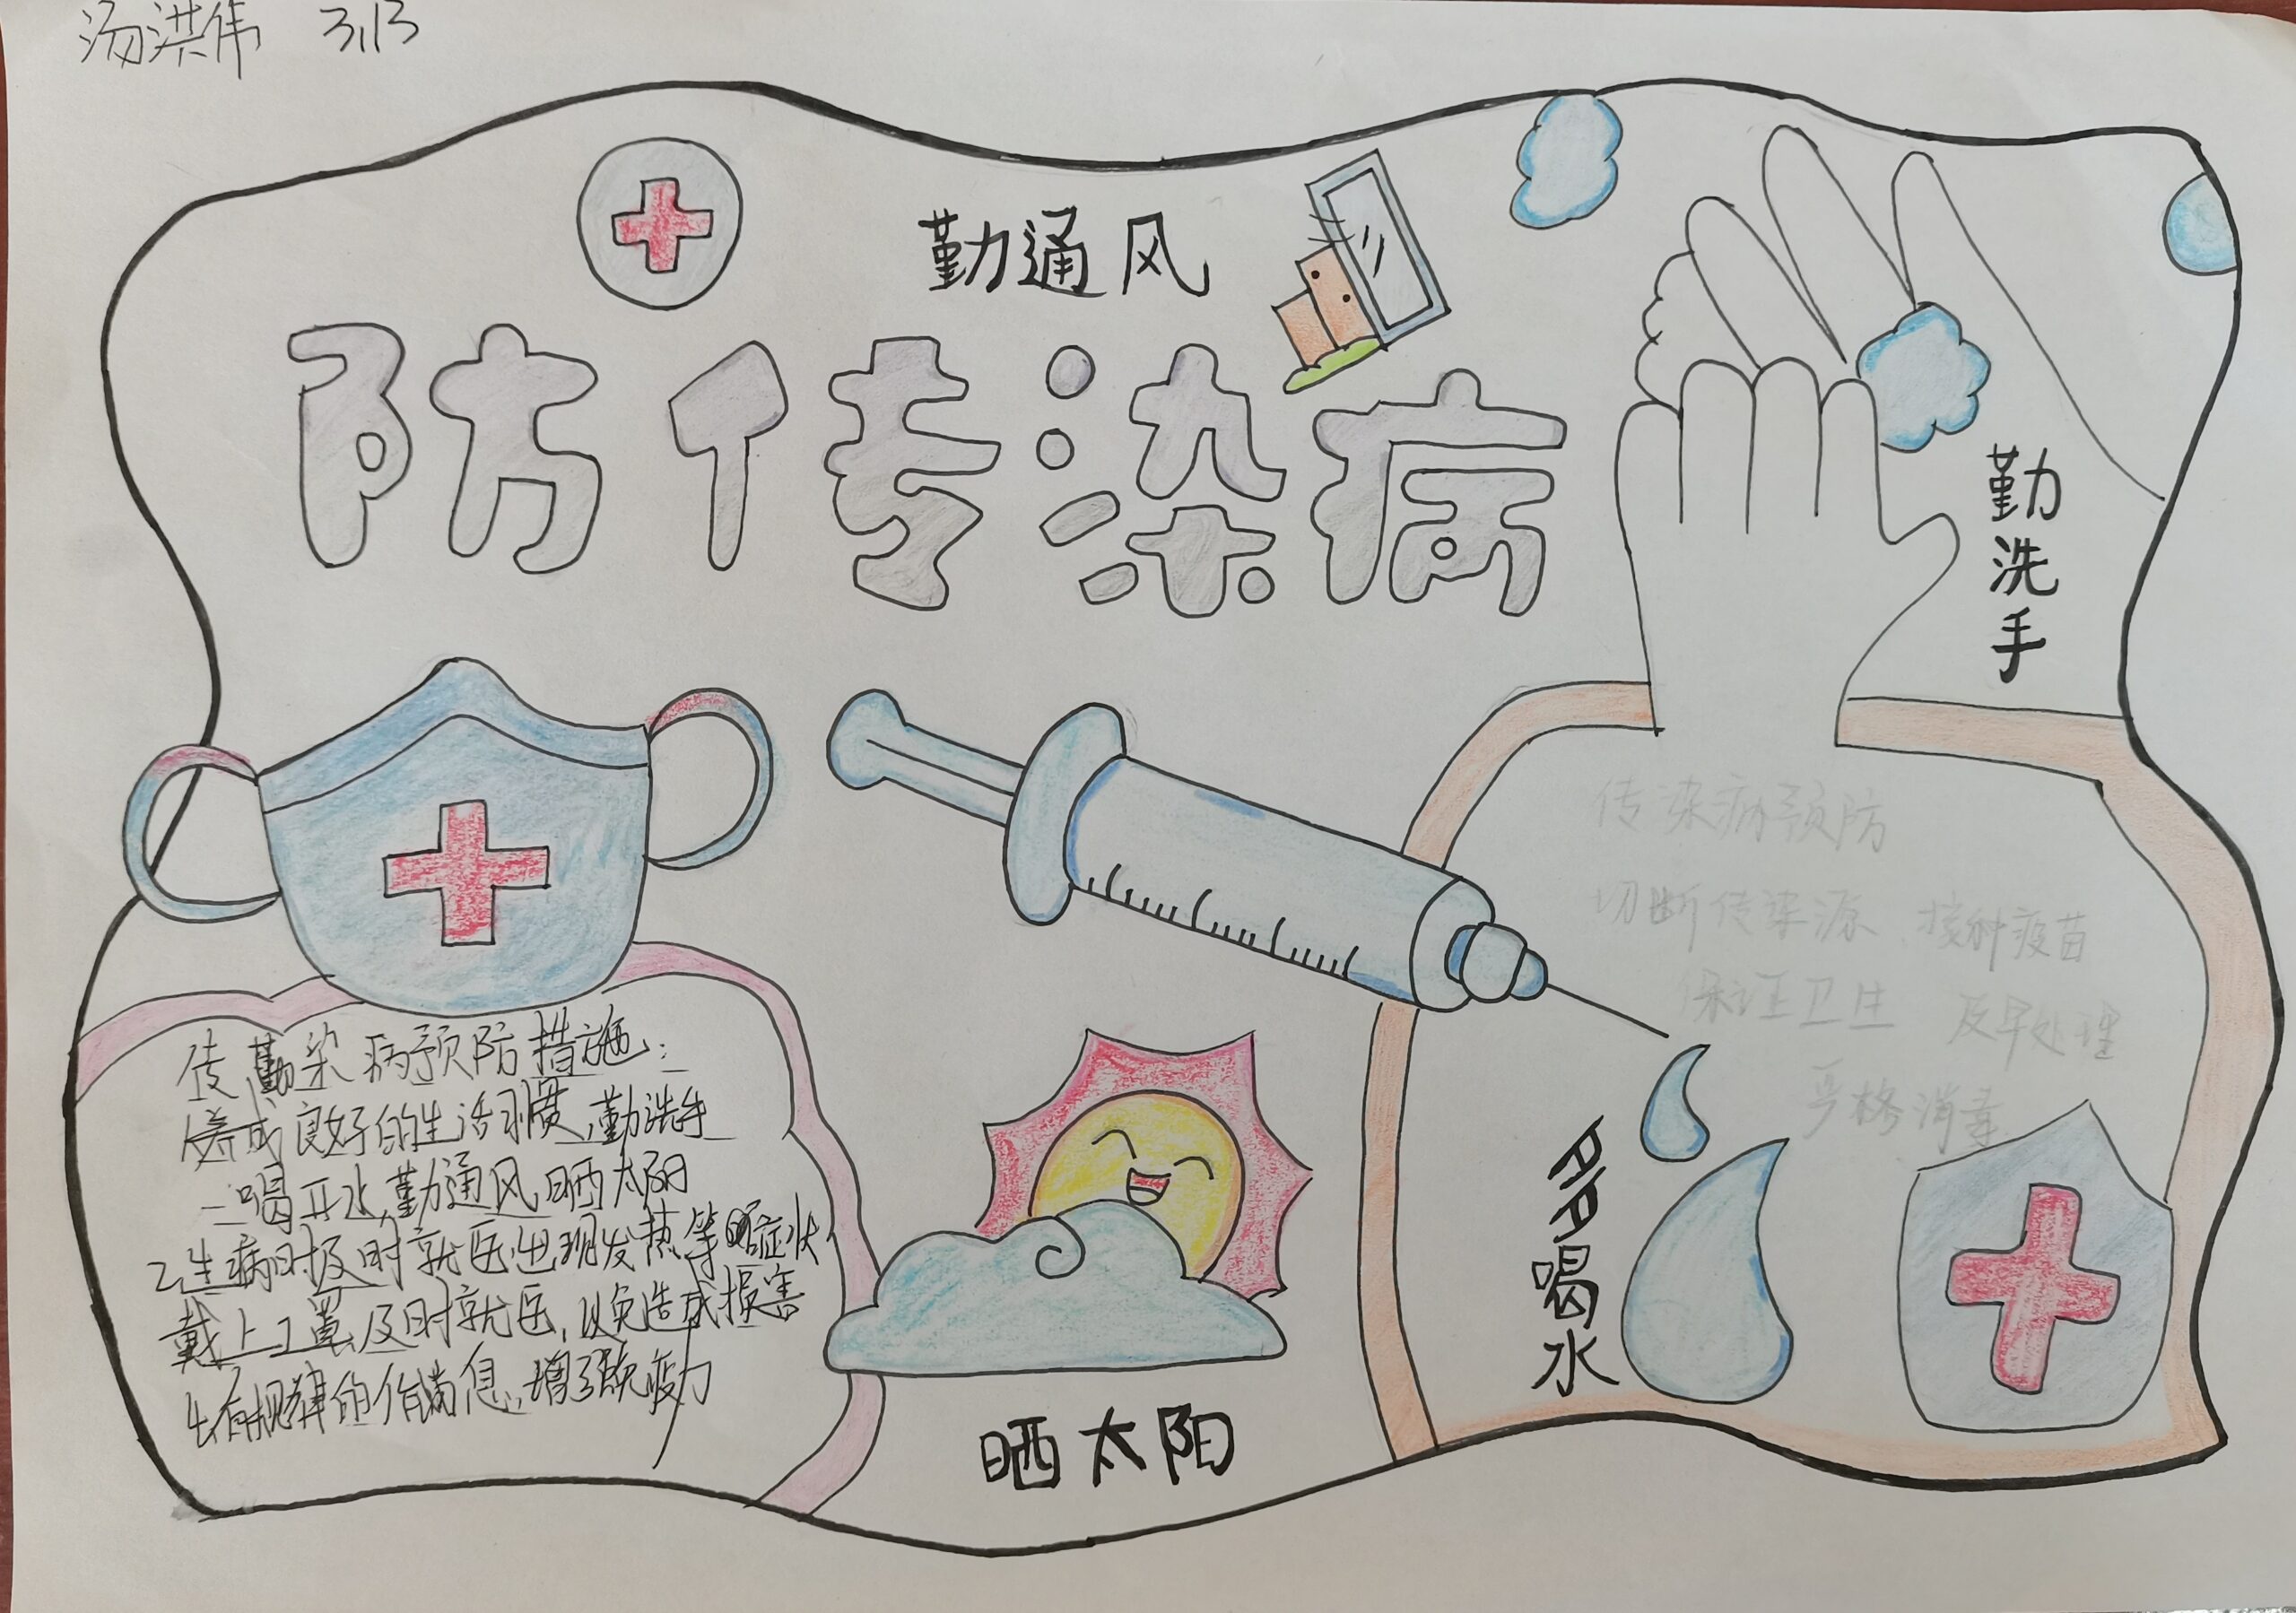 汤洪伟 3.13
勤通风
防传染病
勤洗手
传染病预防
切断传染源 接种疫苗
保证卫生 及早处理
严格消毒
传染病预防措施:
养成良好的生活习惯,勤洗手
喝开水,勤通风,晒太阳
2生病时及时就医,出现发热等症状
戴上口罩,及时就医,以免造成损害
4有规律的作 息,增强免疫力
喝水
晒太阳